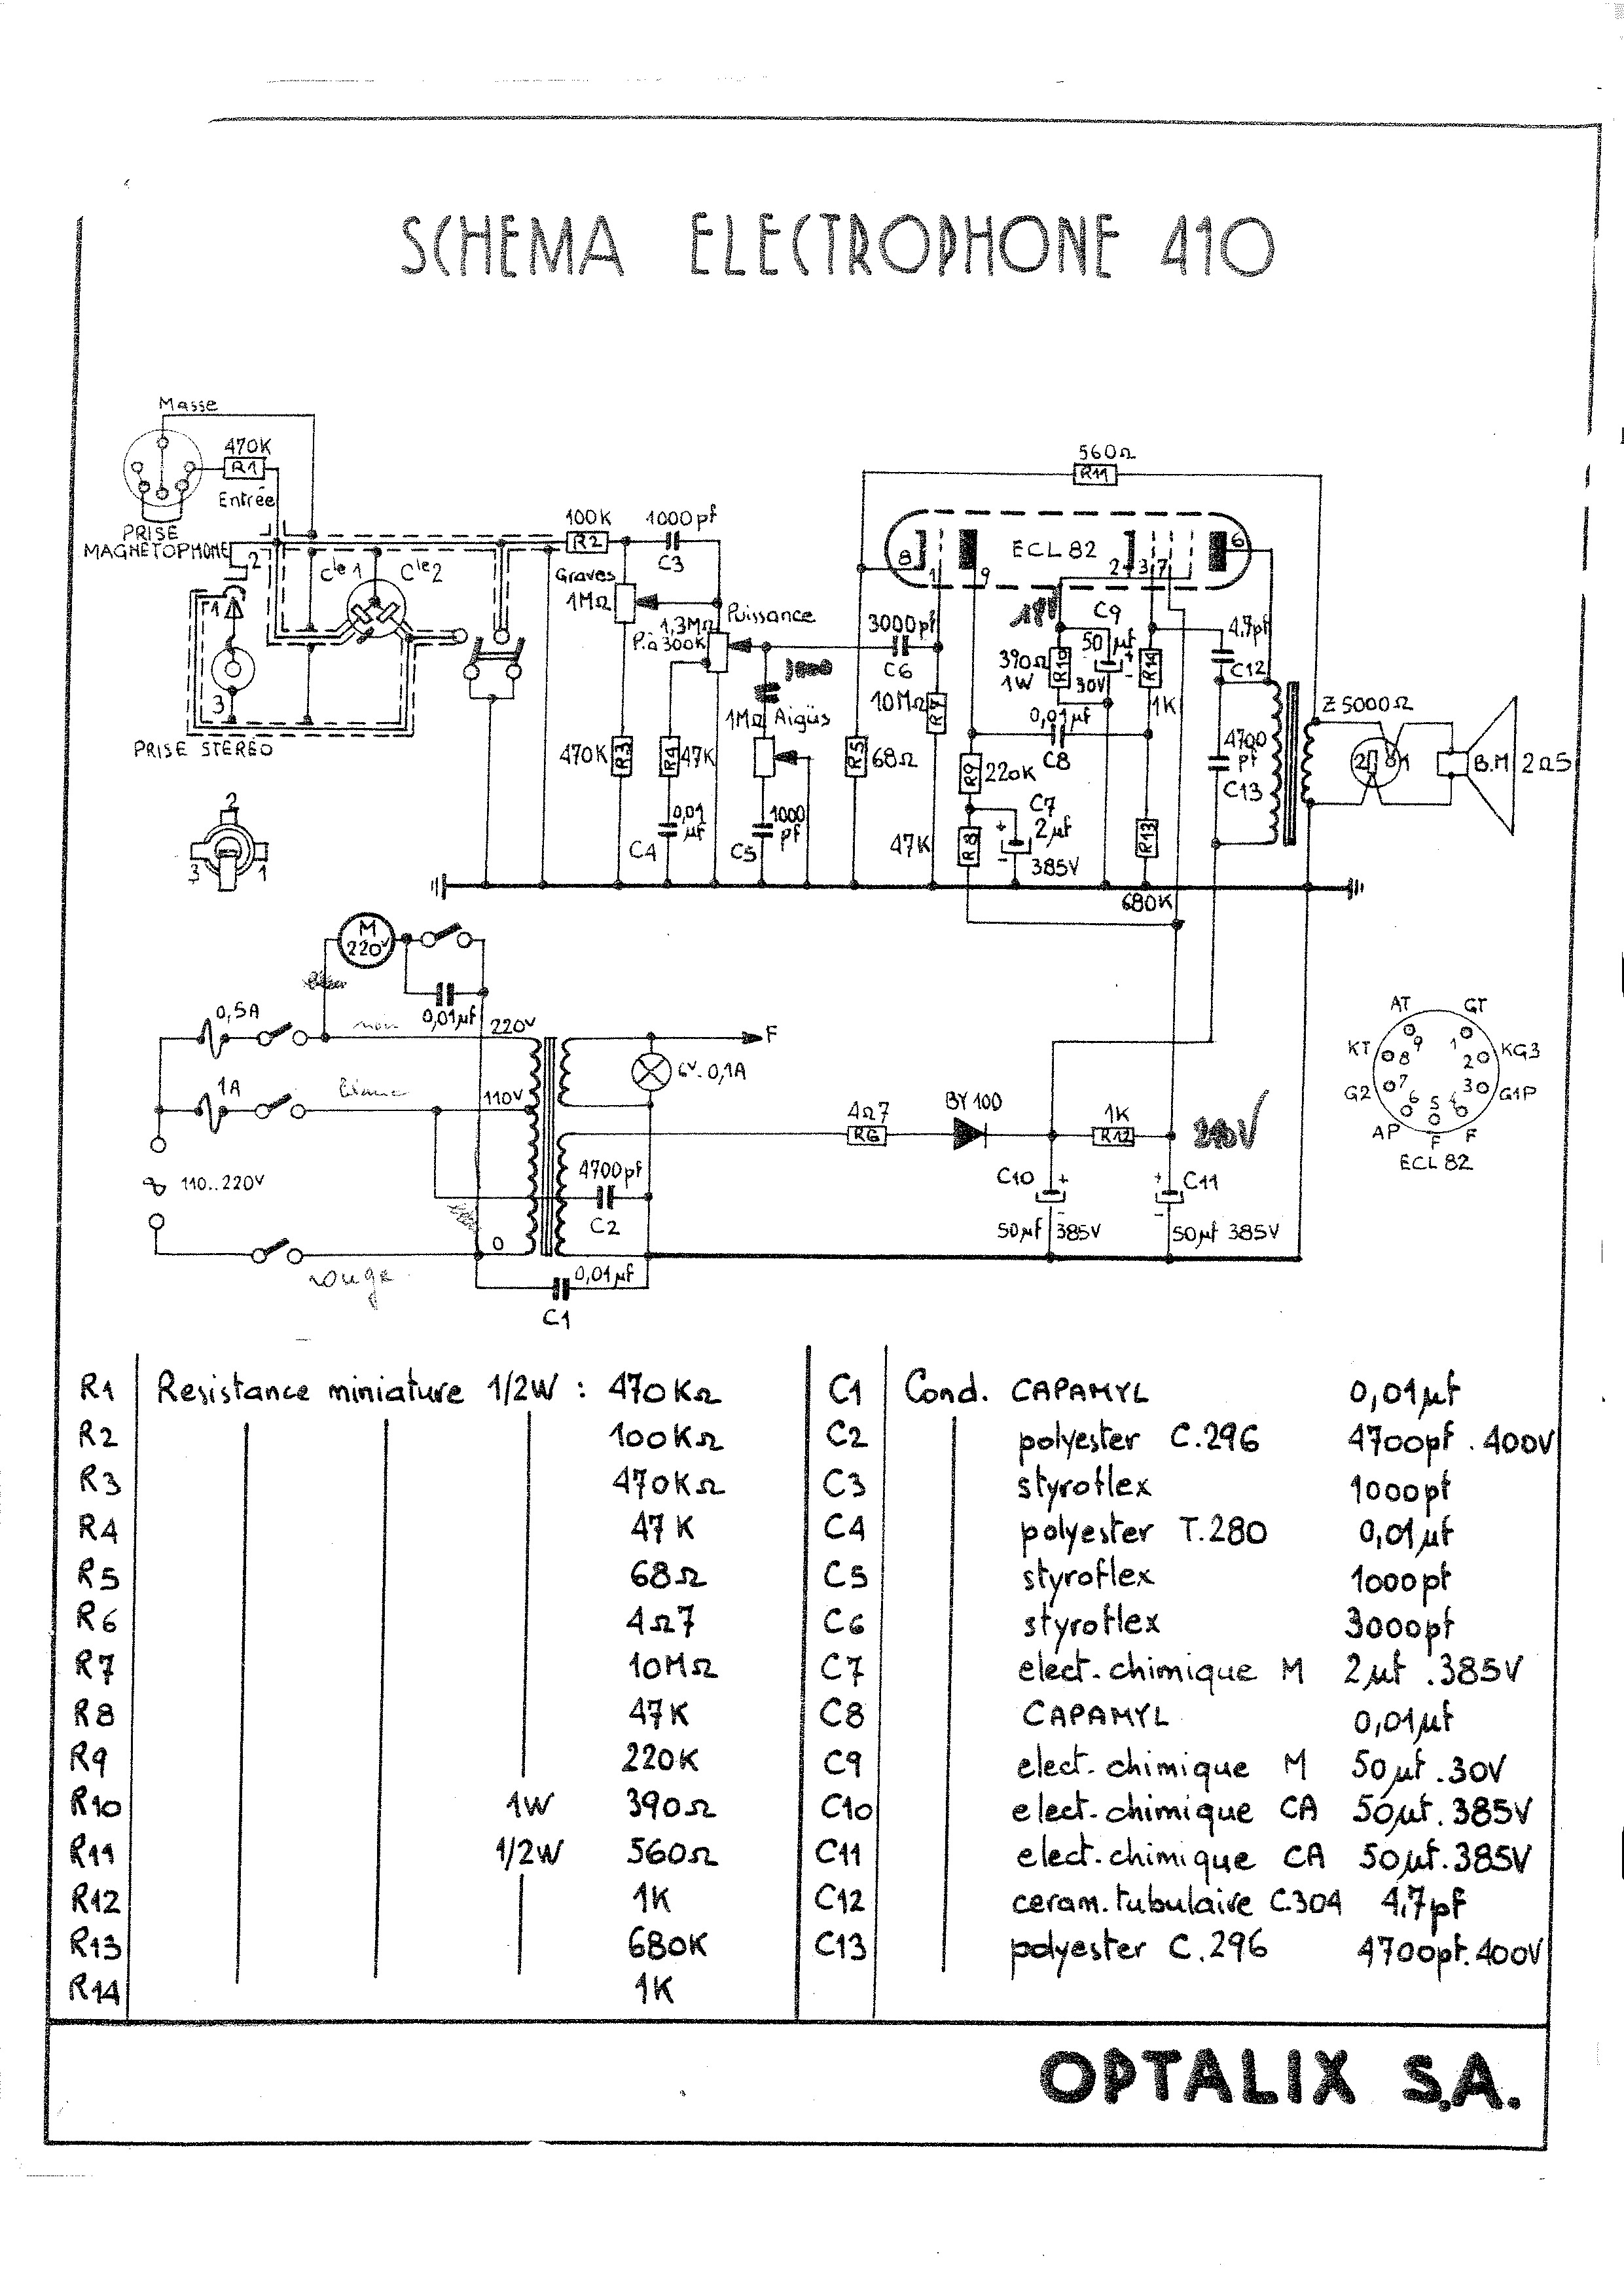 SCHEMA ELECTROPHONE 410
Masse
470K
R1
Entrée
PRISE
MAGNÉTOPHONE
2
1
3
Cle1
Cle2
PRISE STERÉO
2
3
1
100K
R2
1000pf
C3
Graves
1MΩ
Puissance
1,3MΩ
P.à 300K
1MΩ
Aigüs
470K
R3
R4
47K
0,01
µF
C4
1000
pf
C5
3000pf
C6
10MΩ
R7
R5
68Ω
560Ω
R11
ECL 82
8
1
9
2
3
7
6
C9
50 µf
30V
390Ω
1W
R10
R14
1K
0,01µf
C8
R9
220K
C7
2µf
385V
47K
R8
R13
680K
4,7pf
C12
4700
pf
C13
Z 5000Ω
B.M
2Ω5
M
220V
0,01µf
0,5A
220V
1A
blanc
110V
110..220V
rouge
0
0,01µf
C1
F
6V-0,1A
4700pf
C2
4Ω7
R6
BY 100
1K
R12
240V
C10
50µf 385V
C11
50µf 385V
AT
GT
KT
KG3
G2
G1P
AP
F
F
9
1
8
2
7
3
6
5
4
ECL 82
R1 Resistance miniature 1/2W : 470KΩ
R2 100KΩ
R3 470KΩ
R4 47K
R5 68Ω
R6 4Ω7
R7 10MΩ
R8 47K
R9 220K
R10 1W 390Ω
R11 1/2W 560Ω
R12 1K
R13 680K
R14 1K
C1 Cond. CAPAMYL 0,01µf
C2 polyester C.296 4700pf . 400V
C3 styroflex 1000pf
C4 polyester T.280 0,01µf
C5 styroflex 1000pf
C6 styroflex 3000pf
C7 elect-chimique M 2µf .385V
C8 CAPAMYL 0,01µf
C9 elect-chimique M 50µf .30V
C10 elect-chimique CA 50µf.385V
C11 elect-chimique CA 50µf.385V
C12 ceram.tubulaire C.304 4,7pf
C13 polyester C.296 4700pf.400V
OPTALIX S.A.